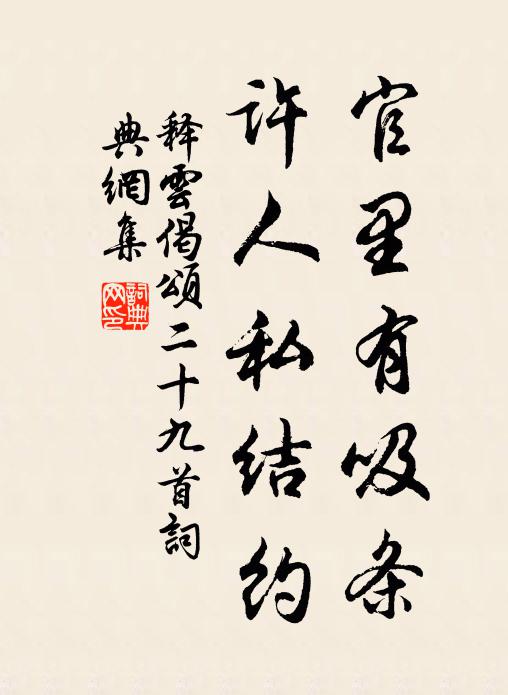 官里有吸条
许人私结约
释雲偈頌二十九首詞
典網集
詞典网印